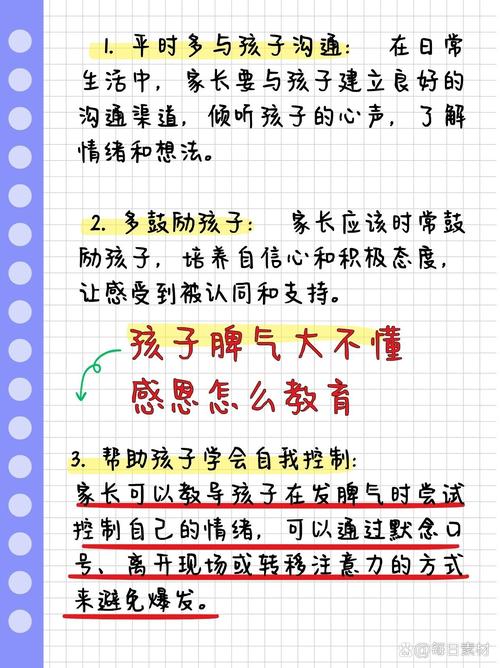 1. 平时多与孩子沟通： 在日常
生活中，家长要与孩子建立良好的
沟通渠道，倾听孩子的心声，了解
情绪和想法。
2. 多鼓励孩子： 家长应该时常鼓
励孩子，培养自信心和积极态度，
让感受到被认同和支持。
孩子脾气大不懂
感恩怎么教育
3. 帮助孩子学会自我控制：
家长可以教导孩子在发脾气时尝试
控制自己的情绪，可以通过默念口
号、离开现场或转移注意力的方式
来避免爆发。
@每日素材